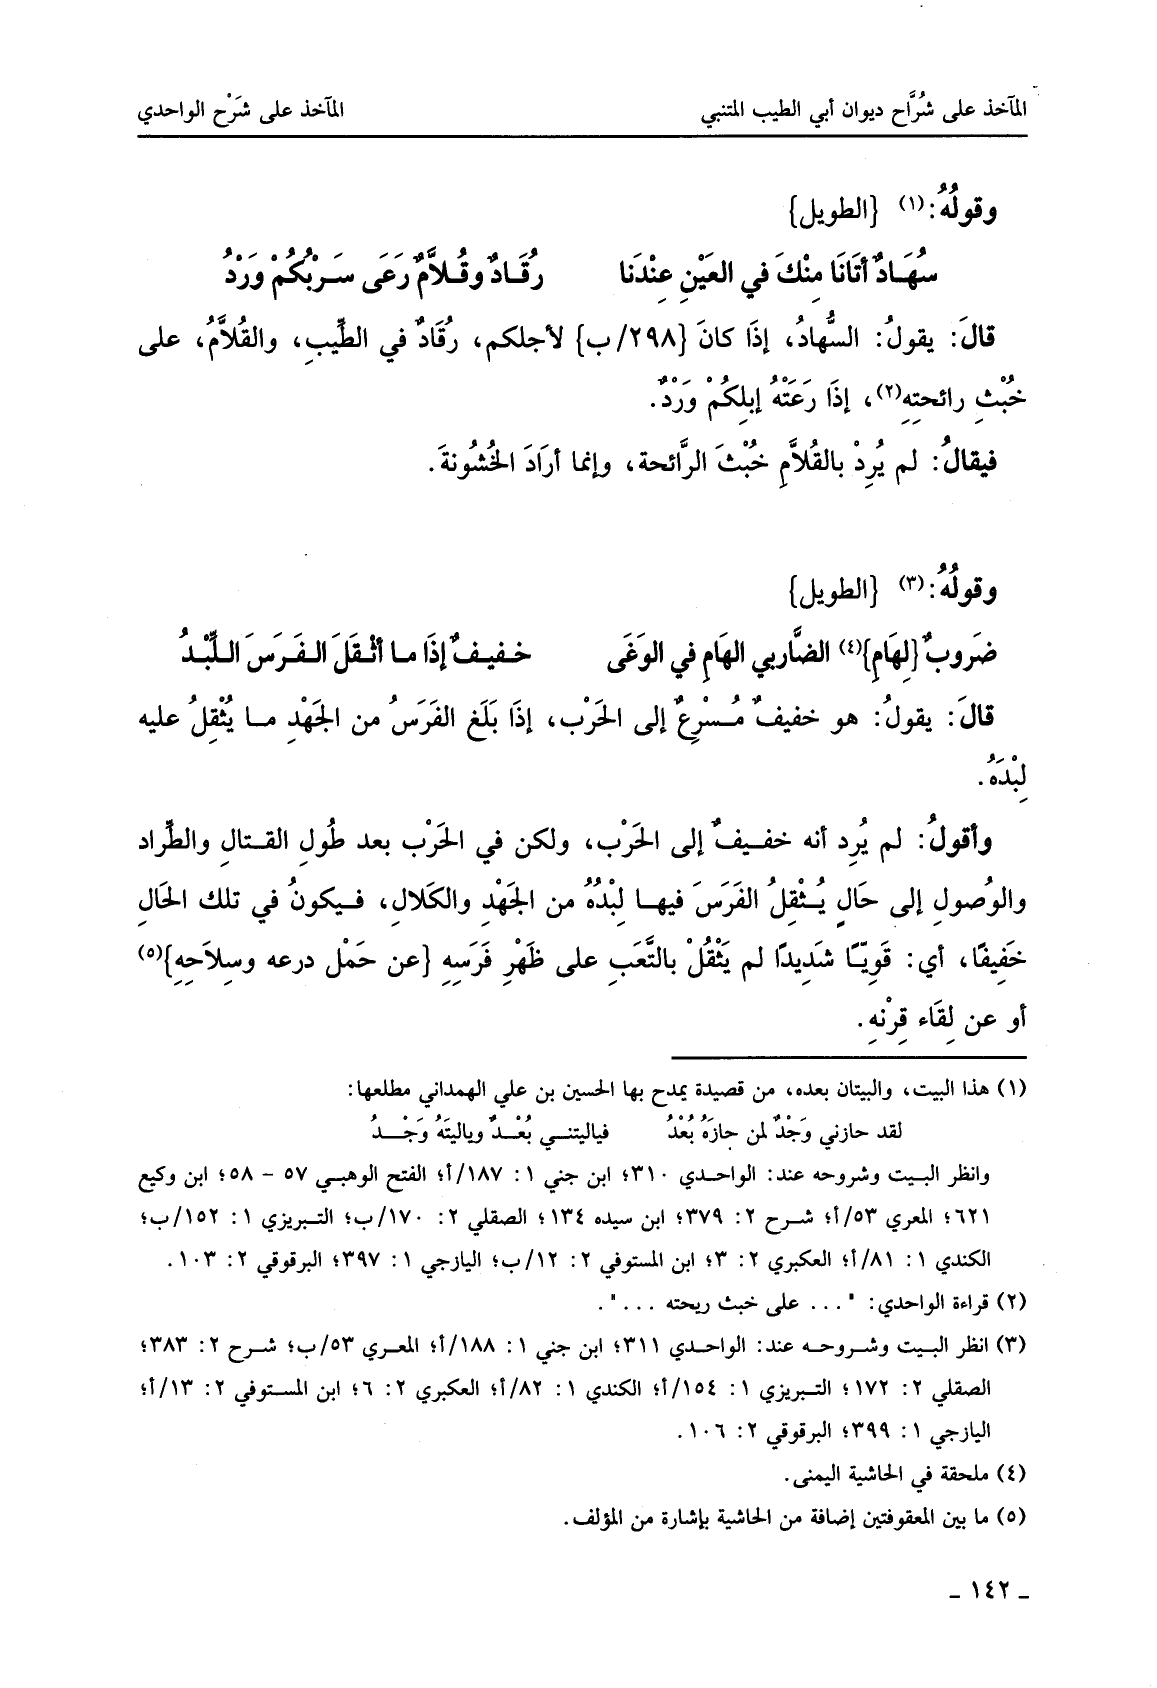 المآخذ على شُرَّاح ديوان أبي الطيب المتنبي المآخذ على شَرْح الواحدي
وقولُهُ:(١) {الطويل}
سُهَادٌ أتَانَا مِنْكَ في العَيْنِ عِنْدَنا رُقَادٌ وقُلاَّمٌ رَعَى سَرْبُكُمْ وَرْدُ
قالَ: يقولُ: السُّهادُ، إذَا كانَ {٢٩٨/ب} لأجلكم، رُقَادٌ في الطِّيبِ، والقُلاَّمُ، على
خُبْثِ رائحتِهِ(٢)، إذَا رَعَتْهُ إبلِكُمْ وَرْدٌ.
فيقالُ: لم يُرِدْ بالقُلاَّمِ خُبْثَ الرَّائحة، وإنما أرَادَ الخُشُونةَ.
وقولُهُ:(٣) {الطويل}
ضَروبٌ {لِهَامِ}(٤) الضَّاربي الهَامِ في الوَغَى خفيفٌ إذَا ما أثْقَلَ الفَرَسَ اللِّبْدُ
قالَ: يقولُ: هو خفيفٌ مُسْرِعٌ إلى الحَرْب، إذَا بَلَغ الفَرَسُ من الجَهْدِ ما يُثْقِلُ عليه
لِبْدَهُ.
وأقولُ: لم يُرِد أنه خفيفٌ إلى الحَرْب، ولكن في الحَرْب بعد طُولِ القتالِ والطِّراد
والوُصولِ إلى حَالٍ يُثْقِلُ الفَرَسَ فيها لِبْدُهُ من الجَهْدِ والكَلالِ، فيكونُ في تلك الحَالِ
خَفِيفًا، أي: قَوِيّا شَدِيدًا لم يَثْقُلْ بالتَّعَبِ على ظَهْرِ فَرَسِهِ {عن حَمْل درعه وسِلاَحِهِ}(٥)
أو عن لِقَاءِ قِرْنِهِ.
(١) هذا البيت، والبيتان بعده، من قصيدة يمدح بها الحسين بن علي الهمداني مطلعها:
لقد حازني وَجْدٌ لمن حازَهُ بُعْدُ فياليتني بُعْدٌ وياليتَهُ وَجْدُ
وانظر البيت وشروحه عند: الواحدي ٣١٠؛ ابن جني ١: ١٨٧/أ؛ الفتح الوهبي ٥٧ - ٥٨؛ ابن وكيع
٦٢١؛ المعري ٥٣/أ؛ شرح ٢: ٣٧٩؛ ابن سيده ١٣٤؛ الصقلي ٢: ١٧٠/ب؛ التبريزي ١: ١٥٢/ب؛
الكندي ١: ٨١/أ؛ العكبري ٢: ٣؛ ابن المستوفي ٢: ١٢/ب؛ اليازجي ١: ٣٩٧؛ البرقوقي ٢: ١٠٣.
(٢) قراءة الواحدي: "... على خبث ريحته ...".
(٣) انظر البيت وشروحه عند: الواحدي ٣١١؛ ابن جني ١: ١٨٨/أ؛ المعري ٥٣/ب؛ شرح ٢: ٣٨٣؛
الصقلي ٢: ١٧٢؛ التبريزي ١: ١٥٤/أ؛ الكندي ١: ٨٢/أ؛ العكبري ٢: ٦؛ ابن المستوفي ٢: ١٣/أ؛
اليازجي ١: ٣٩٩؛ البرقوقي ٢: ١٠٦.
(٤) ملحقة في الحاشية اليمنى.
(٥) ما بين المعقوفتين إضافة من الحاشية بإشارة من المؤلف.
- ١٤٢ -